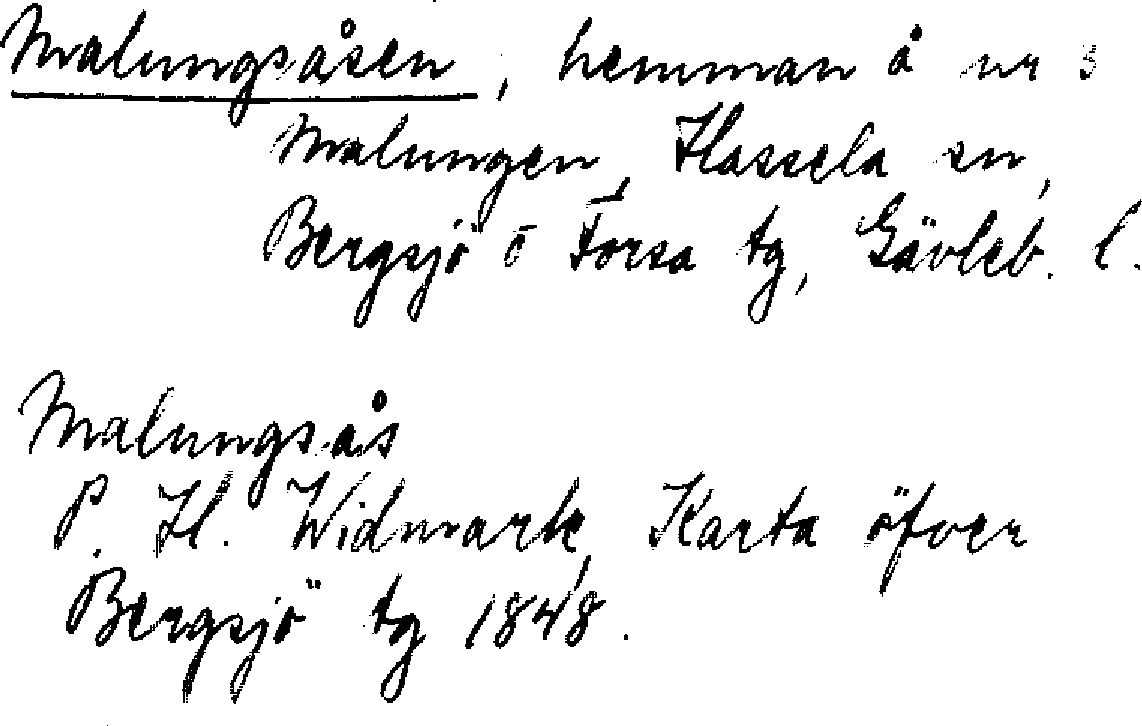 Malungsåsen, hemman å nr 3
Malungen, Hassela sn,
Bergsjö o Forsa tg, Gävleb. l.
Malungsås
P. H. Widmark, Karta öfver
Bergsjö tg 1848.